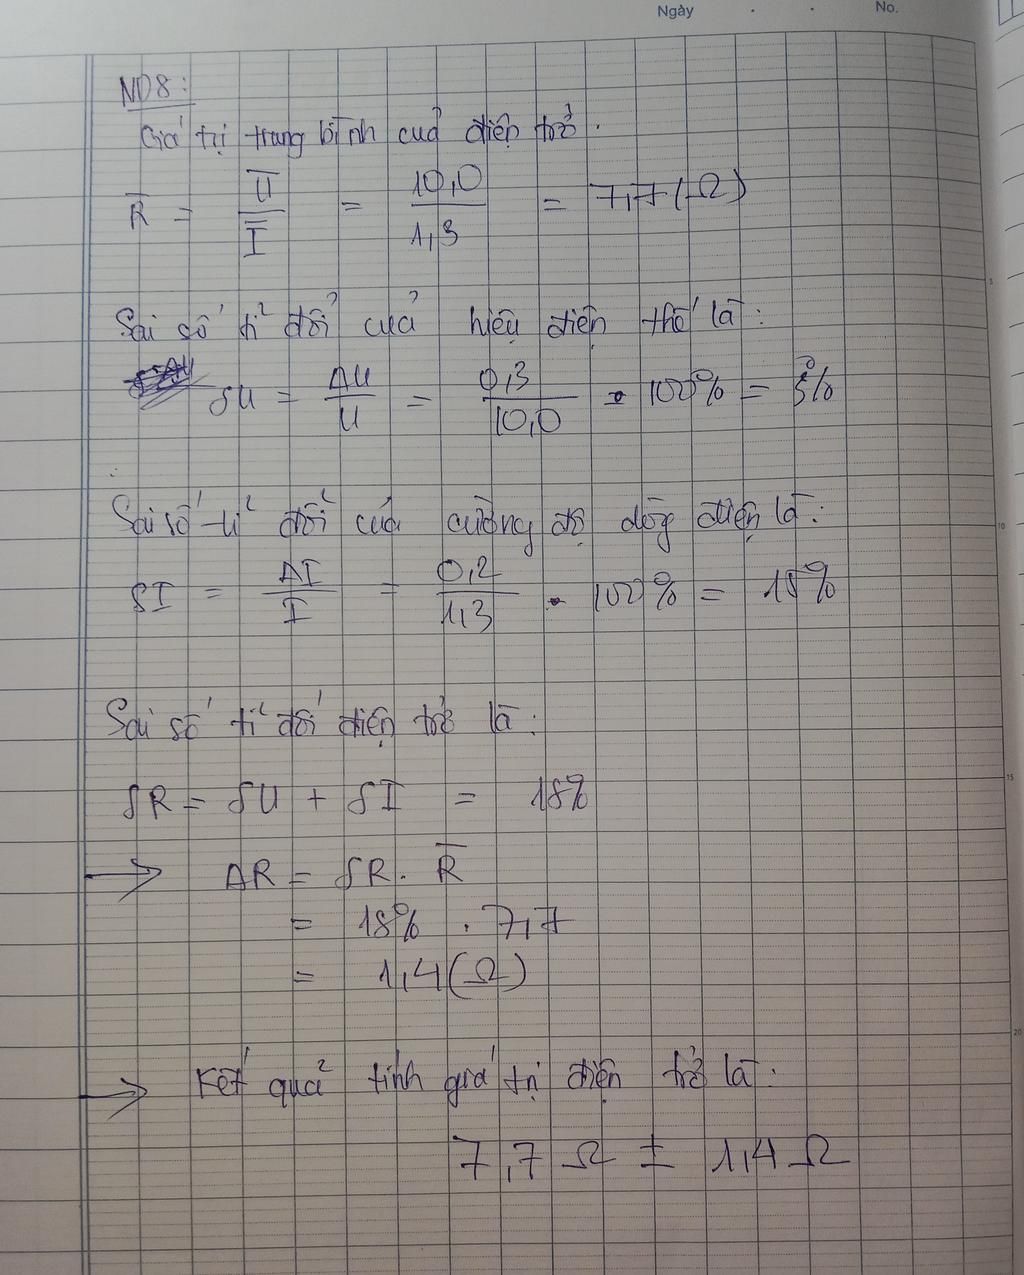 Ngày . . No.
ND8:
Giá trị trung bình của điện trở.
R̅ = U̅ / I̅ = 10,0 / 1,3 = 7,7 (Ω)
5
Sai số tỉ đối của hiệu điện thế là:
δU = ΔU / U = 0,3 / 10,0 . 100% = 3%
Sai số tỉ đối của cường độ dòg điện là:
10
δI = ΔI / I = 0,2 / 1,3 . 100% = 15%
Sai số tỉ đối điện trở là:
15
δR = δU + δI = 18%
→ ΔR = δR . R̅
= 18% . 7,7
= 1,4 (Ω)
20
→ Kết quả tính giá trị điện trở là:
7,7 Ω ± 1,4 Ω